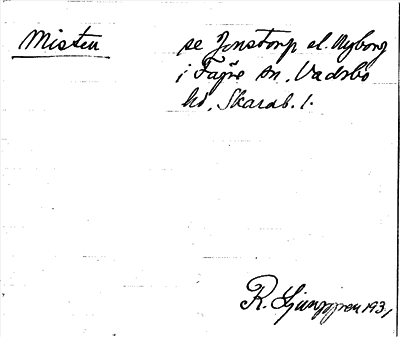 Misten
se Jonstorp el. Nyborg
i Fägre sn, Vadsbo
hd, Skarab. l.
R. Ljunggren 193,